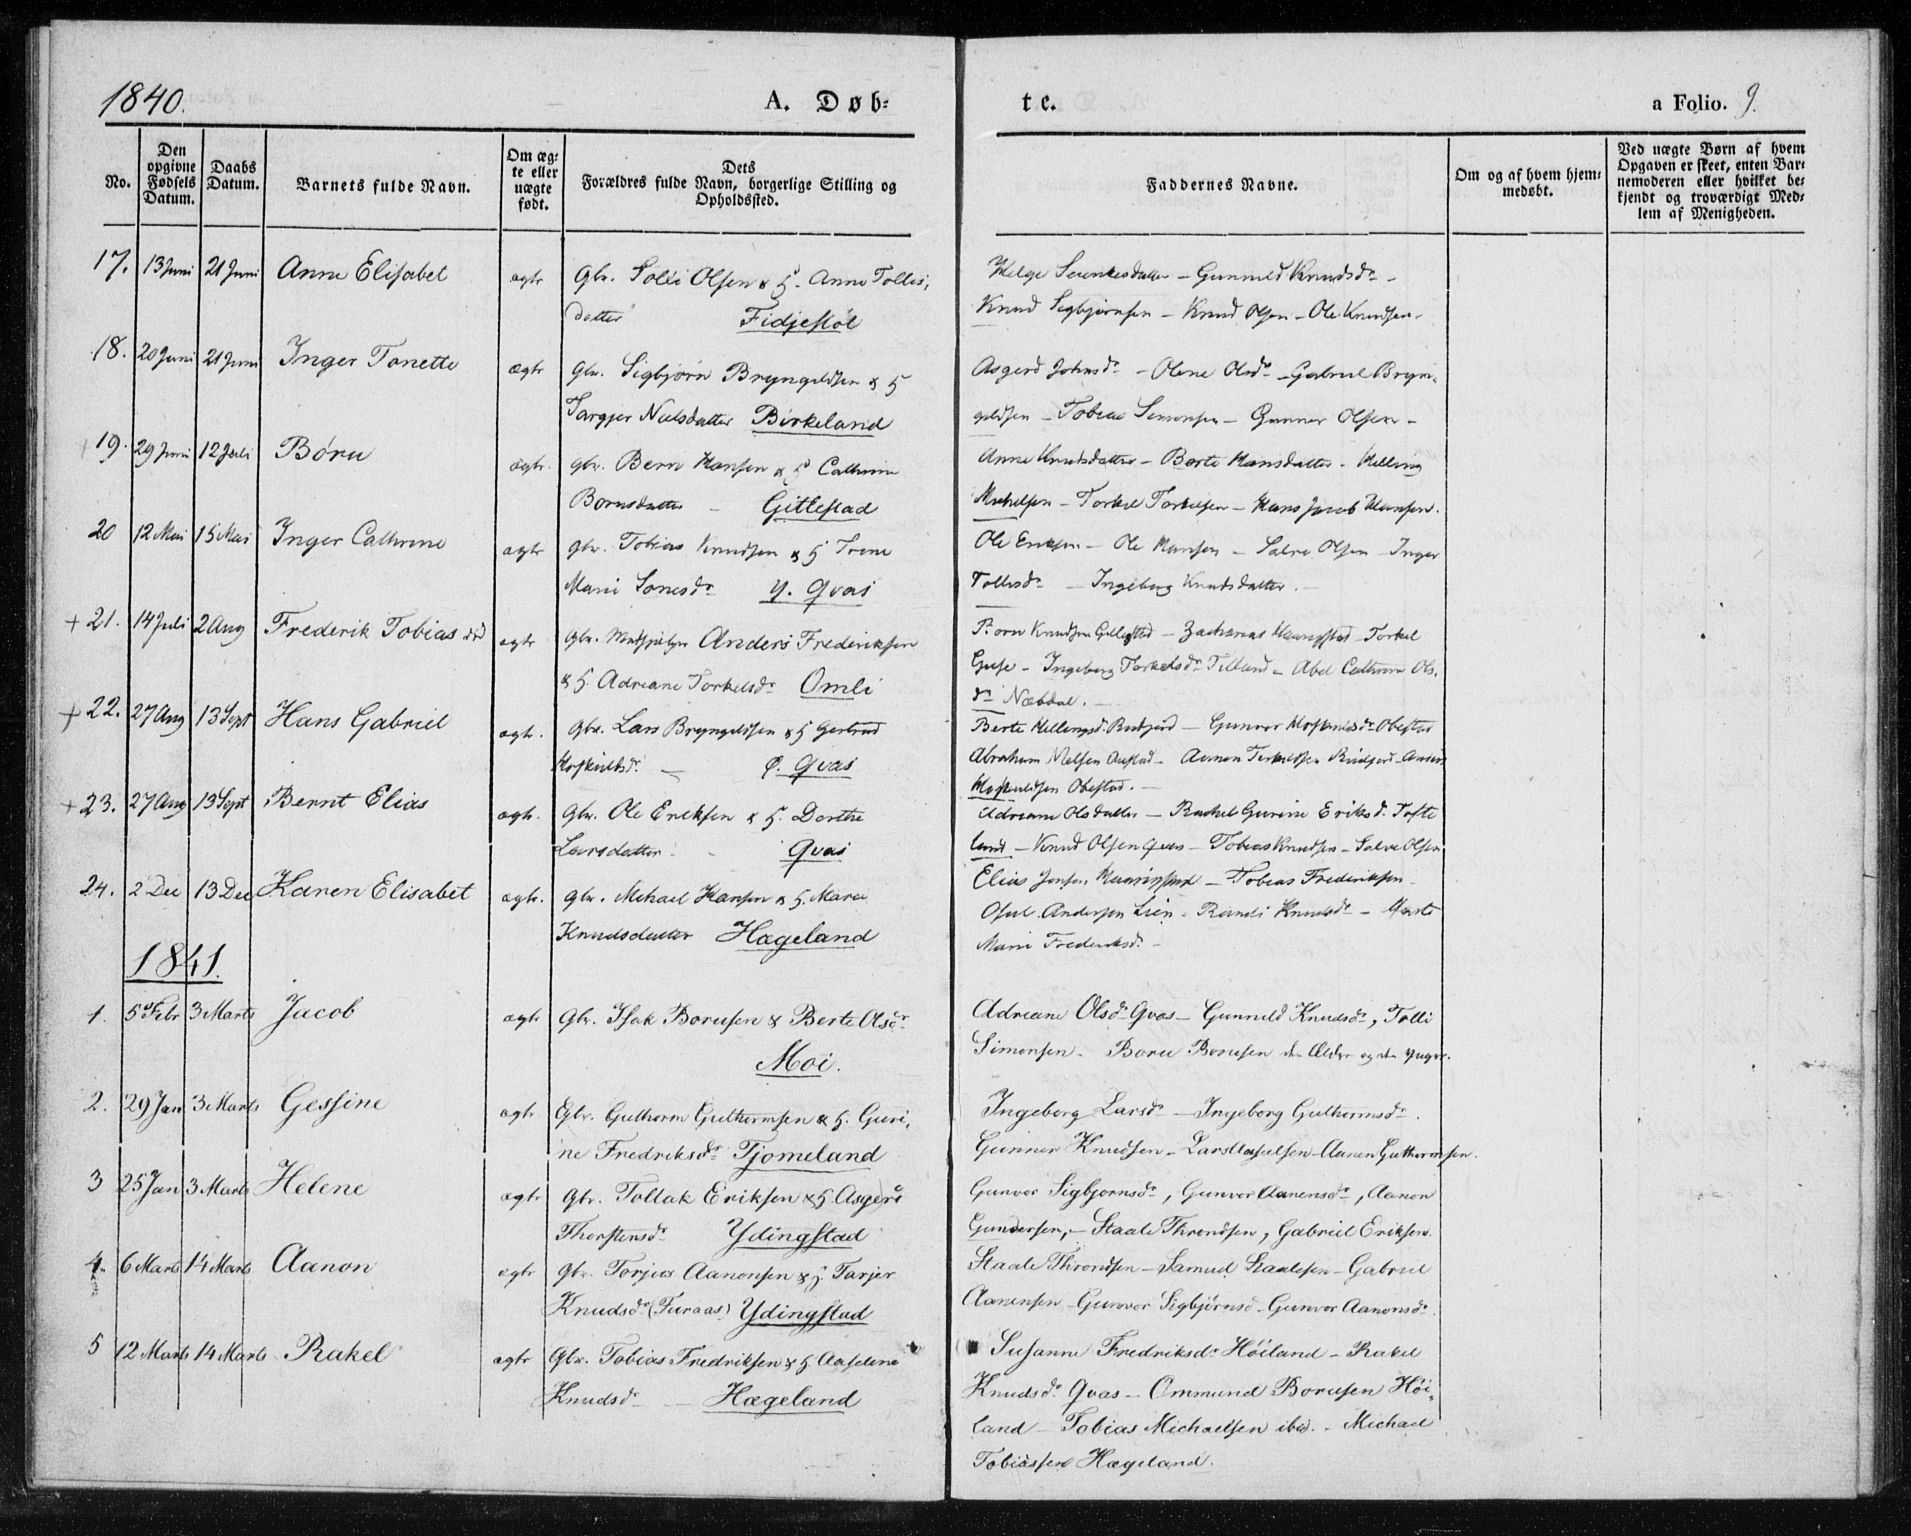 1840.
A. Døb-
te.
a Folio. 9.
No.
Den opgivne Fødsels Datum.
Daabs Datum.
Barnets fulde Navn.
Om ægte eller uægte født.
Dets Forældres fulde Navn, borgerlige Stilling og Opholdssted.
Faddernes Navne.
Om og af hvem hjemmedøbt.
Ved uægte Børn af hvem Opgaven er skeet, enten Barnemoderen eller hvilket bekjendt og troværdigt Medlem af Menigheden.
17. 13 Juni 21 Juni Anne Elisabet ægte Gbr. Tolli Olsen & H. Anne Tollis,
datter Fidjestøl
Helge - Gunnild Knudsdr -
Knud Sigbjørnsen - Knud Olsen - Ole Knudsen -
18. 20 Juni 21 Juni Inger Tonette ægte Gbr. Sigbjørn Bryngeldsen & H
Targjer Nielsdatter Birkeland
Asgerd Johnsdr - Olene Olsdr - Gabriel Bryn-
geldsen - Tobias Simonsen - Gunner Olsen -
+ 19. 29 Juni 12 Juli Børu ægte. gbr. Bern Hansen & H Cathrine
Borusdatter - Gitlestad
Anne Knudsdatter - Berte Hansdatter - Helling
Michelsen - Torkel Torkelsen - Hans Jacob Hansen.
20 12 Mai 15 Mai Inger Cathrine ægte gbr. Tobias Knudsen & H Trine
Marie Tonesdr Y. Qvas
Ole Eriksen - Ole Hansen - Salve Olsen - Inger
Tollisdr - Ingeborg Knudsdatter. -
+ 21. 14 Juli 2 Aug Frederik Tobias ægte Gbr. Anders Frederiksen
& H. Adriane Torkelsdr Omli
Knudsen Gitlestad - Zacharias - Torkel
- Ingeborg Torkelsdr - Abel Cathrine Ols,
dr Næbdal. -
+ 22. 27 Aug 13 Sept Hans Gabriel ægte. Gbr. Lars Bryngeldsen & H Gertrud
Hoskuldsdr. - Ø. Qvas
Berte Hellingsd. - Gunvor Obestad
Abraham Nilsen - Aanen Torkeldsen - Anders
Obestad. -
+ 23. 27 Aug 13 Sept Bernt Elias ægte. Gbr. Ole Eriksen & H. Dorthe
Larsdatter. - Qvas
Adriane Olsdatter - Rachel Gurine Eriksd. Tofte
land - Knud Olsen Qvas - Tobias Knudsen - Salve Olsen
24. 2 Dec 13 Dec Karen Elisabet ægte. gbr. Michael Hansen & H. Maren
Knudsdatter Hægeland
Elias Jensen - Tobias Frederiksen
Osul. Andersen Lien - Randi Knudsdr -
Marie Frederiksdr -
1841.
1. 5 Febr 3 Marts Jacob ægte Gbr. Isak Borusen & Berte Olsdr
Moi.
Adriane Olsdr Qvas - Gunnild Knudsdr, Tolli
Simonsen - Boru Borusen den Ældre og den yngre.
2. 29 Jan 3 Marts Gessine ægte Gbr. Guthorm Guthormsen & H. Guri,
ne Fredriksdr Tjomeland
Ingeborg Larsdr - Ingeborg Guthormsdr.
Gunner Knudsen - Lars - Aanen Guthormsen.
3 25 Jan 3 Marts Helene ægte Gbr. Tollak Eriksen & H. Asgerd
Thorstensdr Ydingstad
Gunvor Sigbjørnsdr, Gunvor Aanensdr, Aanon
Gundersen, - Staale Throndsen, Gabriel Eriksen.
4. 6 Marts 14 Marts Aanon ægte Gbr. Torjus Aanonsen & H. Tarjer
Knudsdr (Furaas) Ydingstad
Staale Throndsen - Samuel Staalesen - Gabriel
Aanensen - Gunvor Sigbjørnsd - Gunvor Aanonsdr.
5 12 Marts 14 Marts Rakel ægte Gbr. Tobias Fredriksen & H Aaselene
Knudsdr - Hægeland
Susanne Fredriksdr Høiland - Rakel
Knudsdr Qvas - Ommund Borusen Høi-
land - Tobias Michaelsen ibid. - Michael
Tobiassen Hægeland.